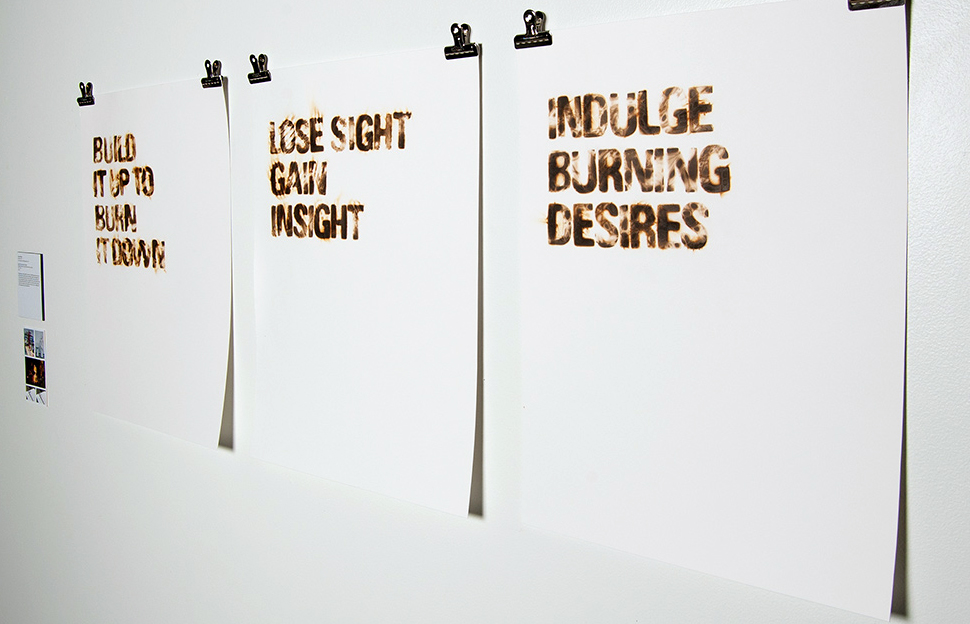 BUILD
IT UP TO
BURN
IT DOWN
LOSE SIGHT
GAIN
INSIGHT
INDULGE
BURNING
DESIRES